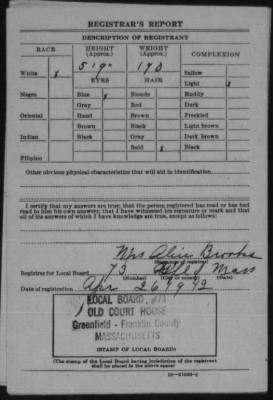 REGISTRAR'S REPORT
DESCRIPTION OF REGISTRANT
RACE HEIGHT (Approx.) WEIGHT (Approx.) COMPLEXION
5' 9" 190
White x EYES HAIR Sallow
Light x
Negro Blue x Blonde Ruddy
Gray Red Dark
Oriental Hazel Brown Freckled
Brown Black Light brown
Indian Black Gray Dark brown
Bald x Black
Filipino
Other obvious physical characteristics that will aid in identification
I certify that my answers are true; that the person registered has read or has had
read to him his own answers; that I have witnessed his signature or mark and that
all of his answers of which I have knowledge are true, except as follows:
Mrs Alice Brooks
Registrar for Local Board 73 Mass
(Number) (City or county) (State)
Date of registration Apr 26 1942
LOCAL BOARD 73
OLD COURT HOUSE
Greenfield - Franklin County
MASSACHUSETTS
(STAMP OF LOCAL BOARD)
(The stamp of the Local Board having jurisdiction of the registrant
shall be placed in the above space)